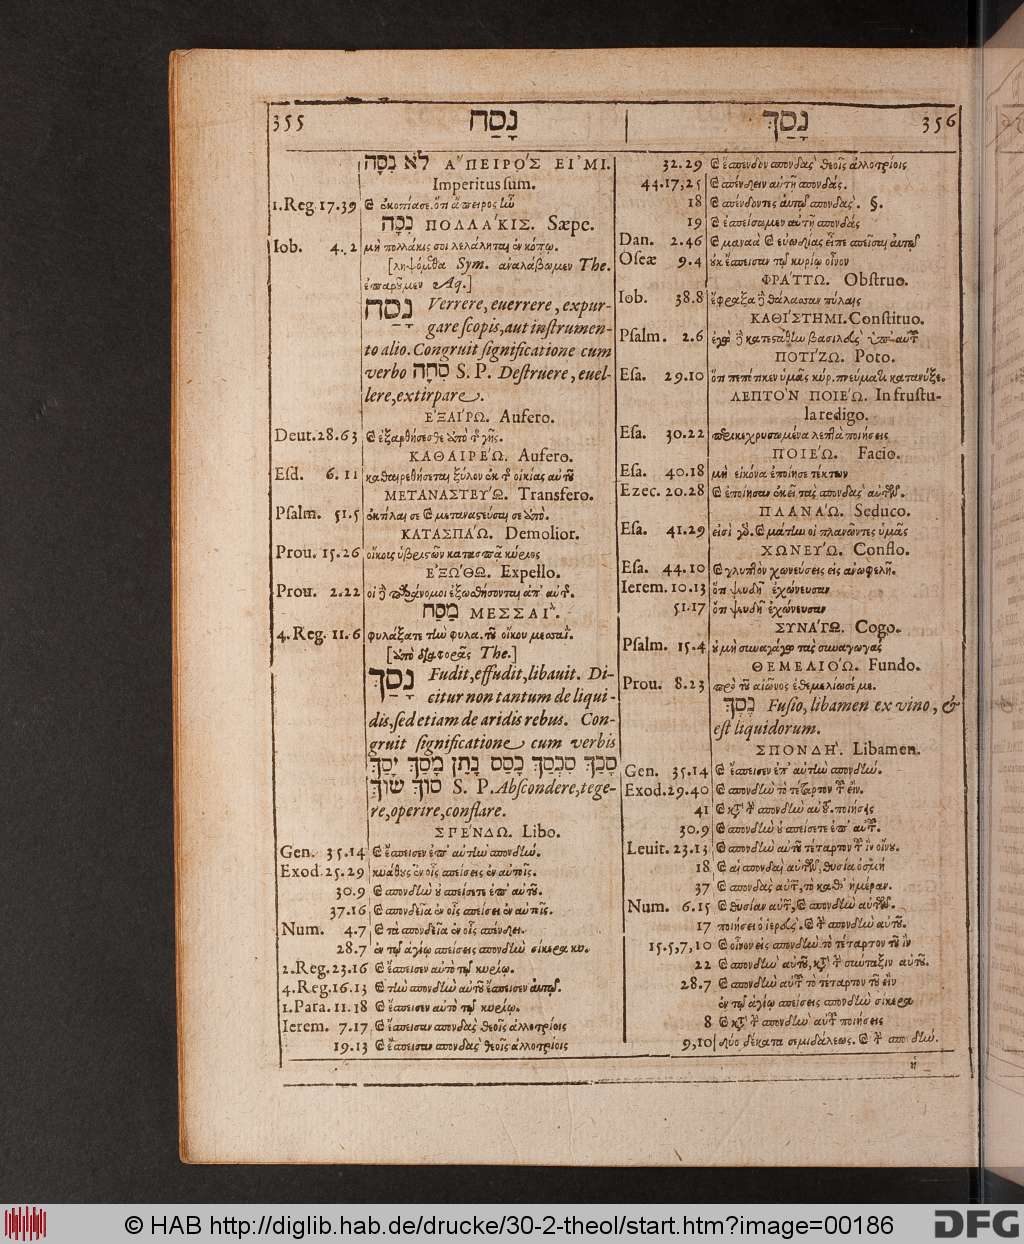 355 נָסַח
נָסַךְ 356
לֹא נִסָּה ΑΠΕΙΡΟΣ ΕΙΜΙ.
Imperitus sum.
1.Reg.17.39 ϗ ἐκοπίασε. ὅτι ἄπειρος ἰῶ
ΠΟΛΛΑΚΙΣ. Sæpe.
Iob. 4.2 μὴ πολλάκις σοι λελάληται ἐν κόπῳ.
Sym. ἀναλάβωμεν The.
Aq.]
נָסַח Verrere, euerrere, expur-
gare scopis, aut instrumen-
to alio. Congruit significatione cum
verbo סָחָה S. P. Destruere, euel-
lere, extirpare.
ΕΞΑΙΡΩ. Aufero.
Deut.28.63 ϗ ἐξαρθήσεσθε ἀπὸ τῆς γῆς.
ΚΑΘΑΙΡΕΩ. Aufero.
Esd. 6.11 καθαιρεθήσεται ξύλον ἐκ τῆς οἰκίας αὐτοῦ
ΜΕΤΑΝΑΣΤΕΥΩ. Transfero.
Psalm. 51.5 ἐκτίλαι σε ϗ μεταναστεύσαι σε ἀπό.
ΚΑΤΑΣΠΑΩ. Demolior.
Prou. 15.26 οἴκους ὑβριστῶν κατασπᾷ κύριος
ΕΞΩΘΩ. Expello.
Prou. 2.22 οἱ δὲ παράνομοι ἐξωσθήσονται ἀπ' αὐτῆς.
מַסַּח ΜΕΣΣΑΪ.
4.Reg. 11.6 φυλάξατε τὴν φυλα. τοῦ οἴκου μεσσαΐ.
[ἀπὸ διαφορᾶς The.]
נָסַךְ Fudit, effudit, libauit. Di-
citur non tantum de liqui-
dis, sed etiam de aridis rebus. Con-
gruit significatione cum verbis
סָכַךְ סִכְסֵךְ כָּסַס נָתַן מָסַךְ יָסַךְ
סוּךְ שׂוּךְ S. P. Abscondere, tege-
re, operire, conflare.
ΣΠΕΝΔΩ. Libo.
Gen. 35.14 ϗ ἔσπεισεν ἐπ' αὐτὴν σπονδήν.
Exod.25.29 κυάθους ἐν οἷς σπείσεις ἐν αὐτοῖς.
30.9 ϗ σπονδὴν οὐ σπείσετε ἐπ' αὐτοῦ.
37.16 ϗ σπονδεῖα ἐν οἷς σπείσει ἐν αὐτοῖς.
Num. 4.7 ϗ τὰ σπονδεῖα ἐν οἷς σπένδει.
28.7 ἐν τῷ ἁγίῳ σπείσεις σπονδὴν σίκερα κυ.
2.Reg.23.16 ϗ ἔσπεισεν αὐτὸ τῷ κυρίῳ.
4.Reg.16.13 ϗ τὴν σπονδὴν αὐτοῦ ἔσπεισεν αὐτῷ.
1.Para.11.18 ϗ ἔσπεισεν αὐτὸ τῷ κυρίῳ.
Ierem. 7.17 ϗ ἔσπεισαν σπονδὰς θεοῖς ἀλλοτρίοις
19.13 ϗ ἔσπεισαν σπονδὰς θεοῖς ἀλλοτρίοις
32.29 ϗ ἔσπενδον σπονδὰς θεοῖς ἀλλοτρίοις
44.17,25 ϗ σπένδειν αὐτῇ σπονδάς.
18 ϗ σπένδοντες αὐτῷ σπονδάς. §.
19 ϗ ἐσπείσαμεν αὐτῇ σπονδάς
Dan. 2.46 ϗ μαναὰ ϗ εὐωδίας εἶπε σπεῖσαι αὐτῷ
Oseæ 9.4 οὐκ ἔσπεισαν τῷ κυρίῳ οἶνον
ΦΡΑΤΤΩ. Obstruo.
Iob. 38.8 ἔφραξα δὲ θάλασσαν πύλαις
ΚΑΘΙΣΤΗΜΙ. Constituo.
Psalm. 2.6 ἐγὼ δὲ κατεστάθην βασιλεὺς ὑπ' αὐτοῦ
ΠΟΤΙΖΩ. Poto.
Esa. 29.10 ὅτι πεπότικεν ὑμᾶς κύρ. πνεύματι κατανύξε.
ΛΕΠΤΟΝ ΠΟΙΕΩ. In frustu-
la redigo.
Esa. 30.22 περικεχρυσωμένα λεπτὰ ποιήσεις
ΠΟΙΕΩ. Facio.
Esa. 40.18 μὴ εἰκόνα ἐποίησε τέκτων
Ezec. 20.28 ϗ ἐποίησαν ἐκεῖ τὰς σπονδὰς αὐτῶν.
ΠΛΑΝΑΩ. Seduco.
Esa. 41.29 εἰσὶ γὰρ. ϗ μάτην οἱ πλανῶντες ὑμᾶς
ΧΩΝΕΥΩ. Conflo.
Esa. 44.10 ϗ γλυπτὸν χωνεύσεις εἰς ἀνωφελῆ.
Ierem.10.13 ὅτι ψευδῆ ἐχώνευσαν
51.17 ὅτι ψευδῆ ἐχώνευσαν
ΣΥΝΑΓΩ. Cogo.
Psalm. 15.4 οὐ μὴ συναγάγω τὰς συναγωγὰς
ΘΕΜΕΛΙΟΩ. Fundo.
Prou. 8.23 πρὸ τοῦ αἰῶνος ἐθεμελίωσέ με.
נֶסֶךְ Fusio, libamen ex vino, &
est liquidorum.
ΣΠΟΝΔΗ. Libamen.
Gen. 35.14 ϗ ἔσπεισεν ἐπ' αὐτὴν σπονδήν.
Exod.29.40 ϗ σπονδὴν τὸ τέταρτον τοῦ εἲν.
41 ϗ κατὰ τὴν σπονδὴν αὐτοῦ. ποιήσεις
30.9 ϗ σπονδὴν οὐ σπείσετε ἐπ' αὐτοῦ.
Leuit. 23.13 ϗ σπονδὴν αὐτοῦ τέταρτον τοῦ ἲν οἴνου.
18 ϗ αἱ σπονδαὶ αὐτῶν, θυσία ὀσμὴ
37 ϗ σπονδὰς αὐτῶν, τὸ καθ' ἡμέραν.
Num. 6.15 ϗ θυσίαν αὐτῶν, ϗ σπονδὴν αὐτῶν.
17 ποιήσει ὁ ἱερεύς. ϗ τὴν σπονδὴν αὐτοῦ.
15.5,7,10 ϗ οἶνον εἰς σπονδὴν τὸ τέταρτον τοῦ ἲν
22 ϗ σπονδὴν αὐτοῦ, κατὰ τὴν σύνταξιν αὐτοῦ.
28.7 ϗ σπονδὴν αὐτοῦ τὸ τέταρτον τοῦ εἲν
ἐν τῷ ἁγίῳ σπείσεις σπονδὴν σίκερα
8 ϗ κατὰ τὴν σπονδὴν αὐτοῦ ποιήσεις
9,10 δύο δέκατα σεμιδάλεως. ϗ τὴν σπονδήν.
© HAB http://diglib.hab.de/drucke/30-2-theol/start.htm?image=00186
DFG